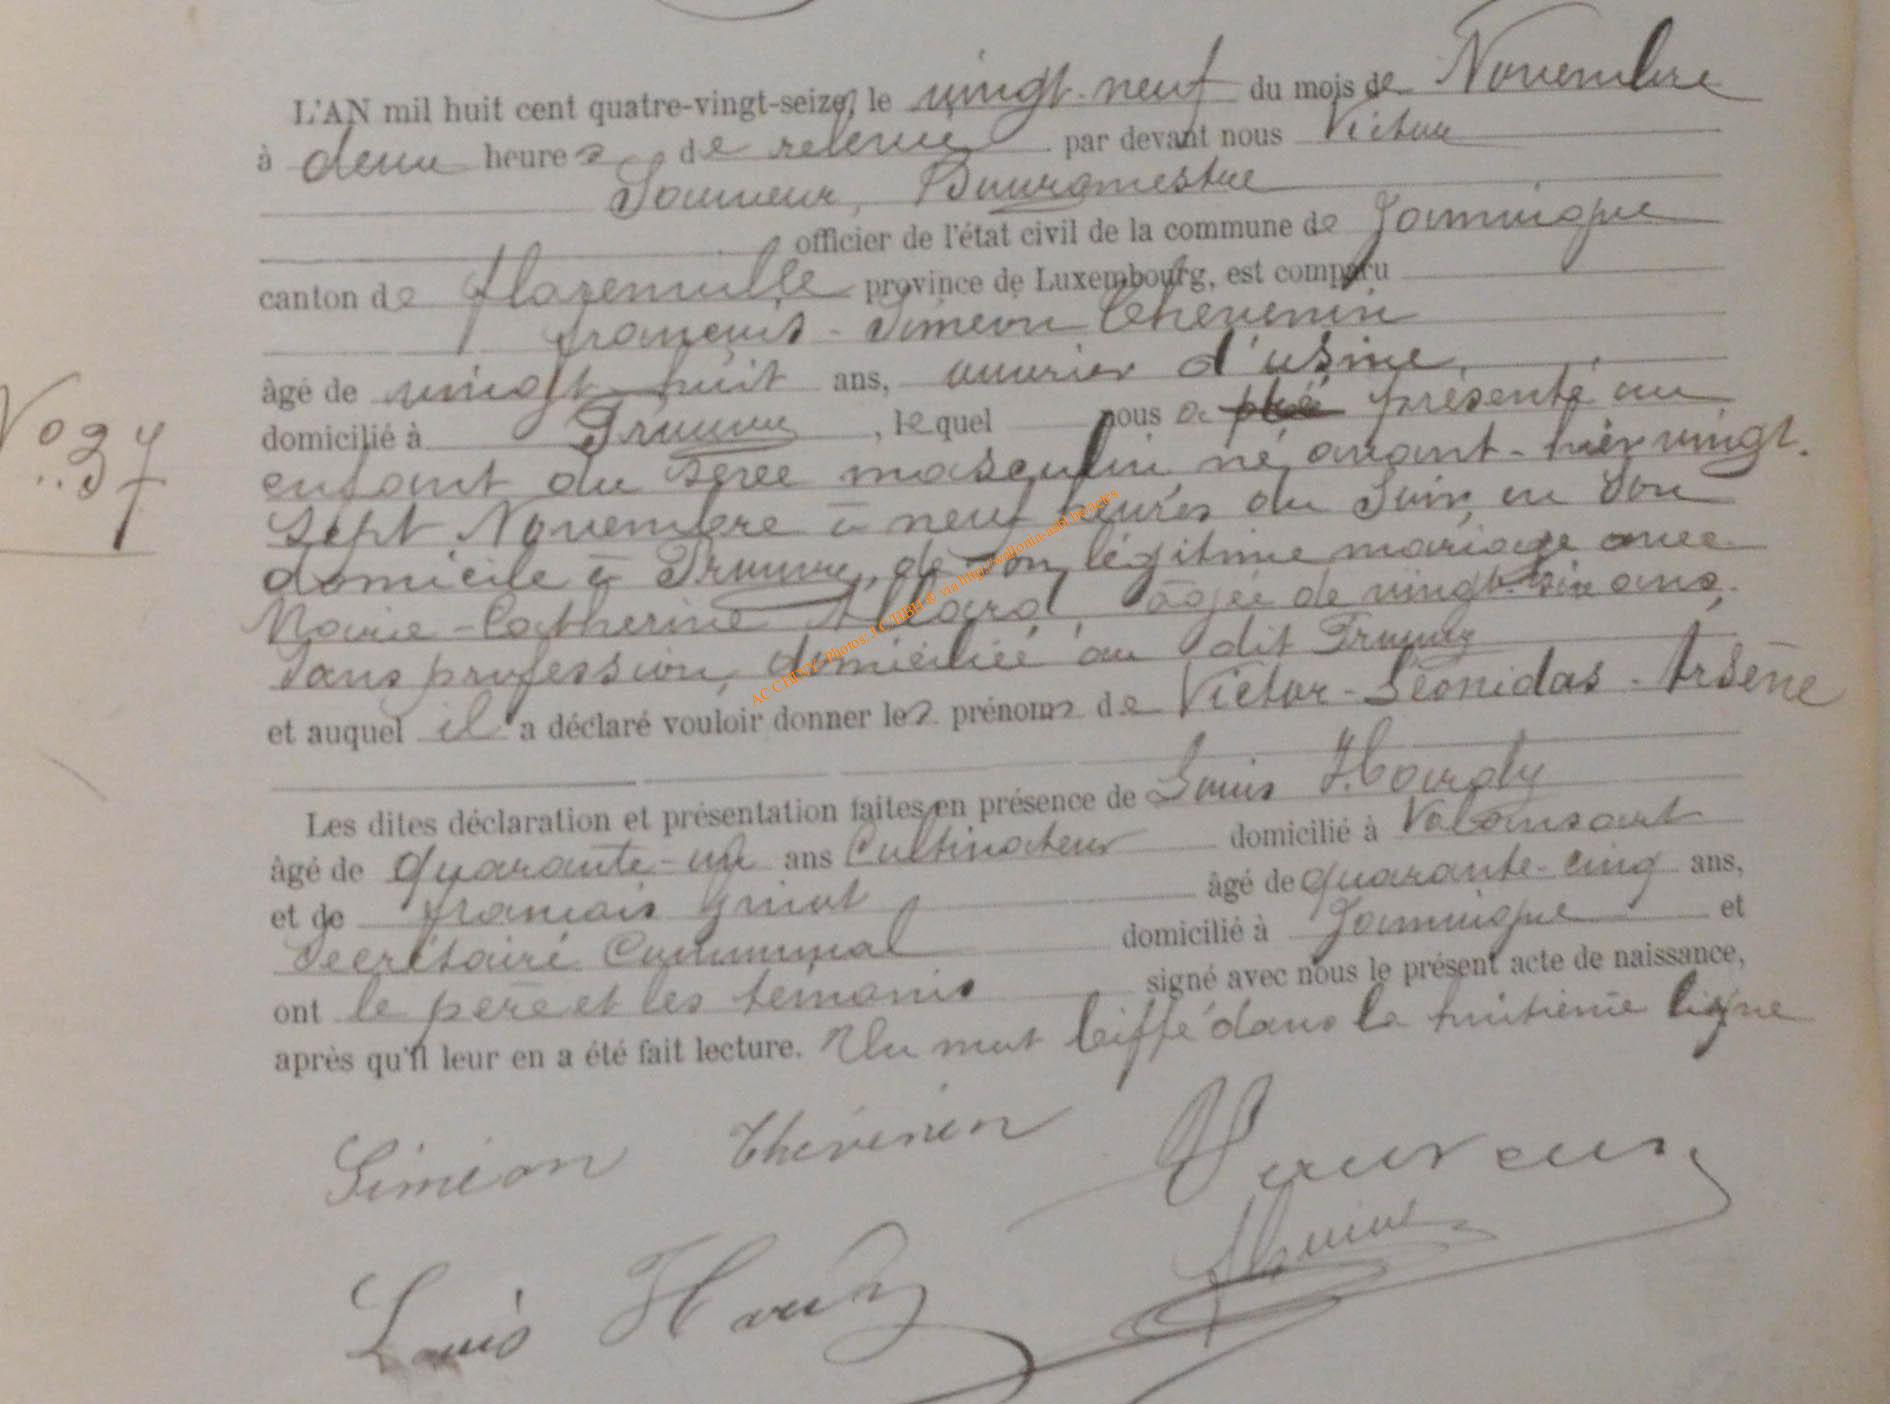 L'AN mil huit cent quatre-vingt-seize, le vingt-neuf du mois de Novembre
à deux heures de relevée par devant nous Victor
Sauveur, Bourgmestre
officier de l'état civil de la commune de Jamoigne
canton de florenville province de Luxembourg, est comparu
françois-Siméon Thévenin
âgé de vingt huit ans, ouvrier d'usine,
domicilié à Prouvy, lequel nous a présenté un
No 37
enfant du sexe masculin, né avant-hier vingt-
sept Novembre à neuf heures du Soir, en Son
domicile à Prouvy, de Son légitime mariage avec
Marie-Catherine Allard, âgée de vingt-six ans,
Sans profession, domiciliée au dit Prouvy
et auquel il a déclaré vouloir donner les prénoms de Victor-Léonidas-Arsène
Les dites déclaration et présentation faites en présence de Louis Hardy
âgé de quarante-un ans Cultivateur domicilié à Valansart
et de françois âgé de quarante-cinq ans,
Secrétaire Communal domicilié à Jamoigne et
ont le père et les témoins signé avec nous le présent acte de naissance,
après qu'il leur en a été fait lecture. Un mot biffé dans la huitième ligne
Siméon Thévenin
Sauveur
Louis Hardy
AC CHINY - Photos: LC/HBH © via http://wallonia-asbl.be/actes